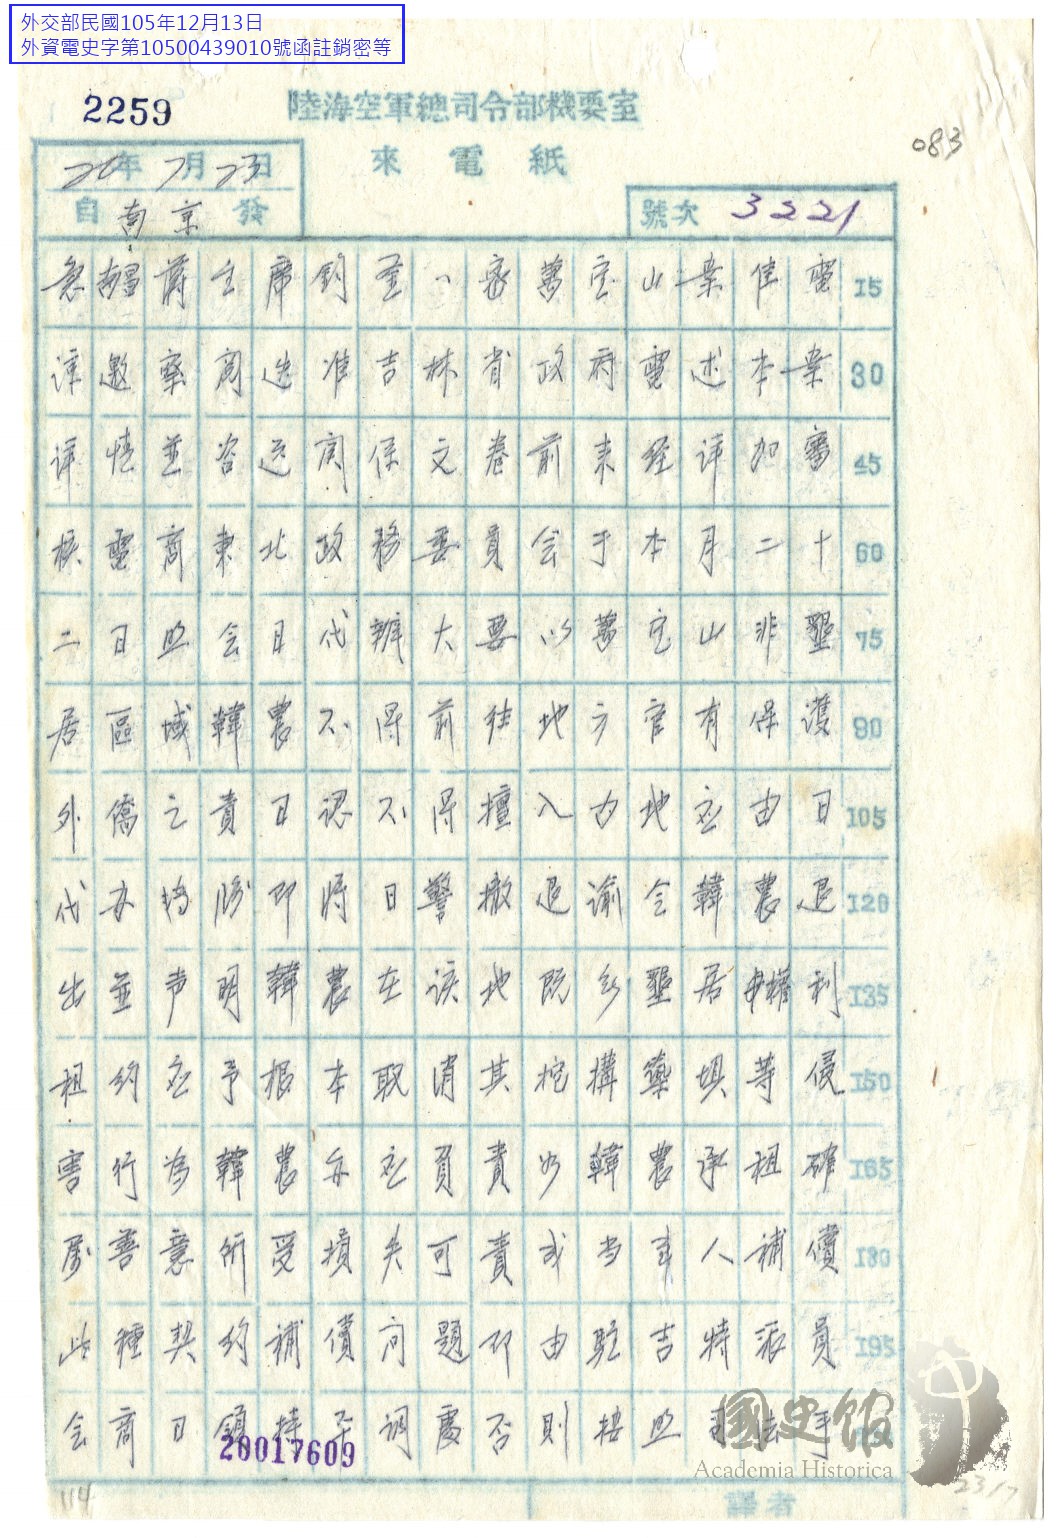 外交部民國105年12月13日
外資電史字第10500439010號函註銷密等
2259
陸海空軍總司令部機要室
083
來電紙
20年7月23日
自南京發
號次 3221
急南昌蔣主席鈞鑒密萬宝山案佳電 15
諒邀察閱迭准吉林省政府電述本案 30
详情並咨送関係文卷前来经详加審 45
核電商東北政務委員会于本月二十 60
二日照会日代辦大要以萬宝山非墾 75
居區域韓農不得前往地方官有保護 90
外僑之責日認不得擅入內地应由日 105
代办转饬即将日警撤退谕令韓農退 120
出並声明韓農在该地既無墾居權利 135
租约应予根本取消其挖溝築埧等侵 150
害行為韓農亦应負責如韓農承租確 165
属善意所受損失可責成当事人補償 180
此種契约補償问題即由駐吉特派員 195
会商日領持平调處否則按照司法手
20017609
國史館
Academia Historica
譯者
114
2317